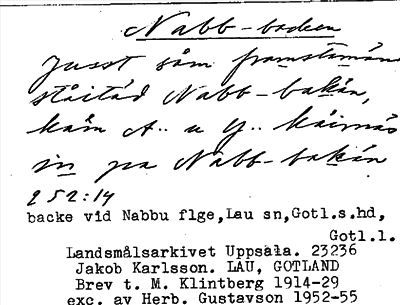 Nabb-backen
Jusst såm framstmäns
ståitäd Nabb-bakän,
kåm A.. u Y.. käimäs
in pa Nabb-bakän
252:14
backe vid Nabbu flge,Lau sn,Gotl.s.hd,
Gotl.l.
Landsmålsarkivet Uppsala. 23236
Jakob Karlsson. LAU, GOTLAND
Brev t. M. Klintberg 1914-29
exc. av Herb. Gustavson 1952-55